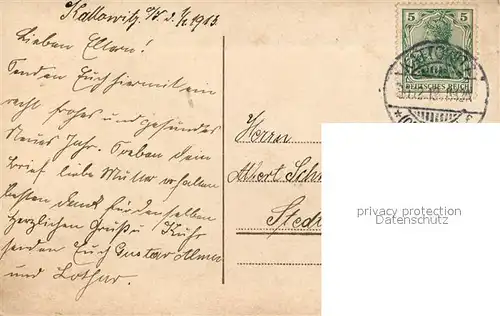 Kattowitz O/S d. 1/1 1913.
Lieben Eltern!
Senden Euch hiermit ein
recht frohes und gesundes
Neues Jahr. Soeben dein
Brief liebe Mutter erhalten
besten Dank für denselben
Herzlichen Gruß u Küße
senden Euch Gustav Alma
und Lothar.
5 5
DEUTSCHES REICH
Herrn
Albert
privacy protection
DATENSCHUTZ